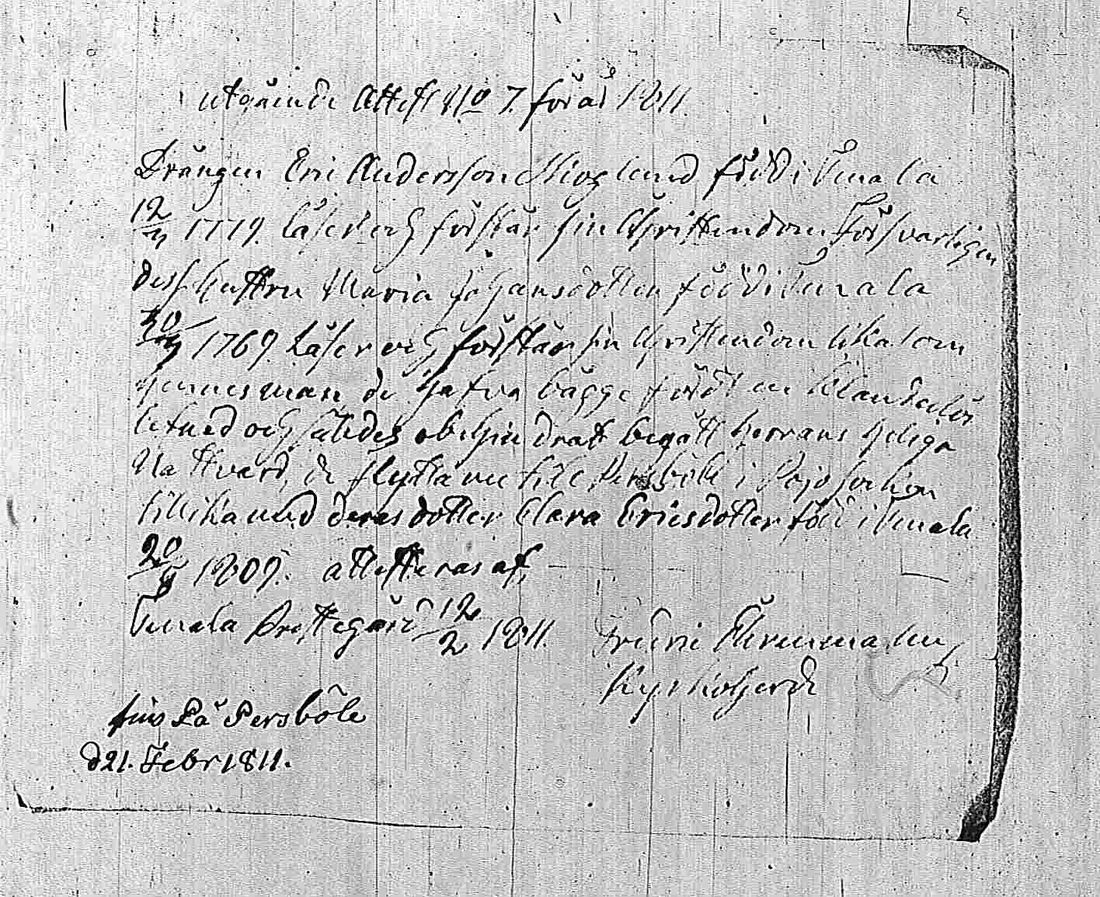 utgående Attest No 7. för år 1811.
Drängen Eric Andersson Skoglund född i Tenala
12/11 1779. läser och förstår sin Christendom försvarligen
dess Hustru Maria Johansdotter född i Tenala
30/9 1769. Läser och förstår sin Christendom lika som
hennes man de hafva bägge fördt en klanderlös
lefnad och således obehindradt begått Herrans Heliga
Nattvard, de flytta nu till Persböle i Pojo sochn
tillika med deras dotter Clara Ericsdotter född i Tenala
20/8 1809. attesteras af,
Tenala Prestegård 12/2 1811.
Fredric Ehrenmalm
Kyrkoherde
på Persböle
d 21. Febr 1811.